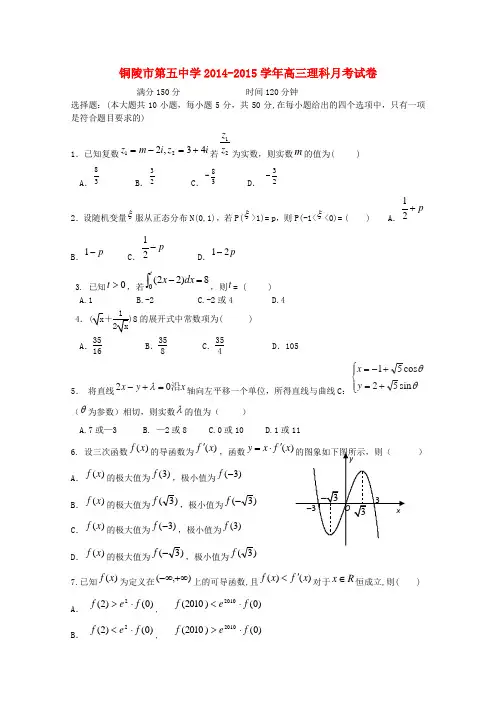 铜陵市第五中学2014-2015学年高三理科月考试卷
满分150分 时间120分钟
选择题：(本大题共10小题，每小题5分，共50分,在每小题给出的四个选项中，只有一项是符合题目要求的)
1．已知复数 z₁ = m − 2i, z₂ = 3 + 4i 若 z₁/z₂ 为实数，则实数 m 的值为( )
A．8/3 B．3/2 C．−8/3 D．−3/2
2．设随机变量ξ服从正态分布N(0,1)，若P(ξ>1)= p，则P(-1<ξ<0)=( ) A．1/2 + p
B．1 − p C．1/2 − p D．1 − 2p
3. 已知 t > 0，若 ∫₀ᵗ(2x − 2)dx = 8，则 t = ( )
A.1 B.-2 C.-2或4 D.4
4．(√x＋1/(2√x))8的展开式中常数项为( )
A．35/16 B．35/8 C．35/4 D．105
5． 将直线 2x − y + λ = 0沿x 轴向左平移一个单位，所得直线与曲线C：{x = −1 + √5 cosθ, y = 2 + √5 sinθ
（θ为参数）相切，则实数λ的值为（ ）
A.7或—3 B. —2或8 C.0或10 D.1或11
6. 设三次函数 f(x) 的导函数为 f′(x)，函数 y = x · f′(x) 的图象如下图所示，则（ ）
A． f(x) 的极大值为 f(√3)，极小值为 f(−√3)
B． f(x) 的极大值为 f(√3)，极小值为 f(−√3)
C． f(x) 的极大值为 f(−3)，极小值为 f(3)
D． f(x) 的极大值为 f(−√3)，极小值为 f(√3)
y
−3
−√3
O
√3
3
x
7.已知 f(x) 为定义在 (−∞,+∞) 上的可导函数,且 f(x) < f′(x) 对于 x ∈ R 恒成立,则( )
A． f(2) > e² · f(0)， f(2010) < e²⁰¹⁰ · f(0)
B． f(2) < e² · f(0)， f(2010) > e²⁰¹⁰ · f(0)